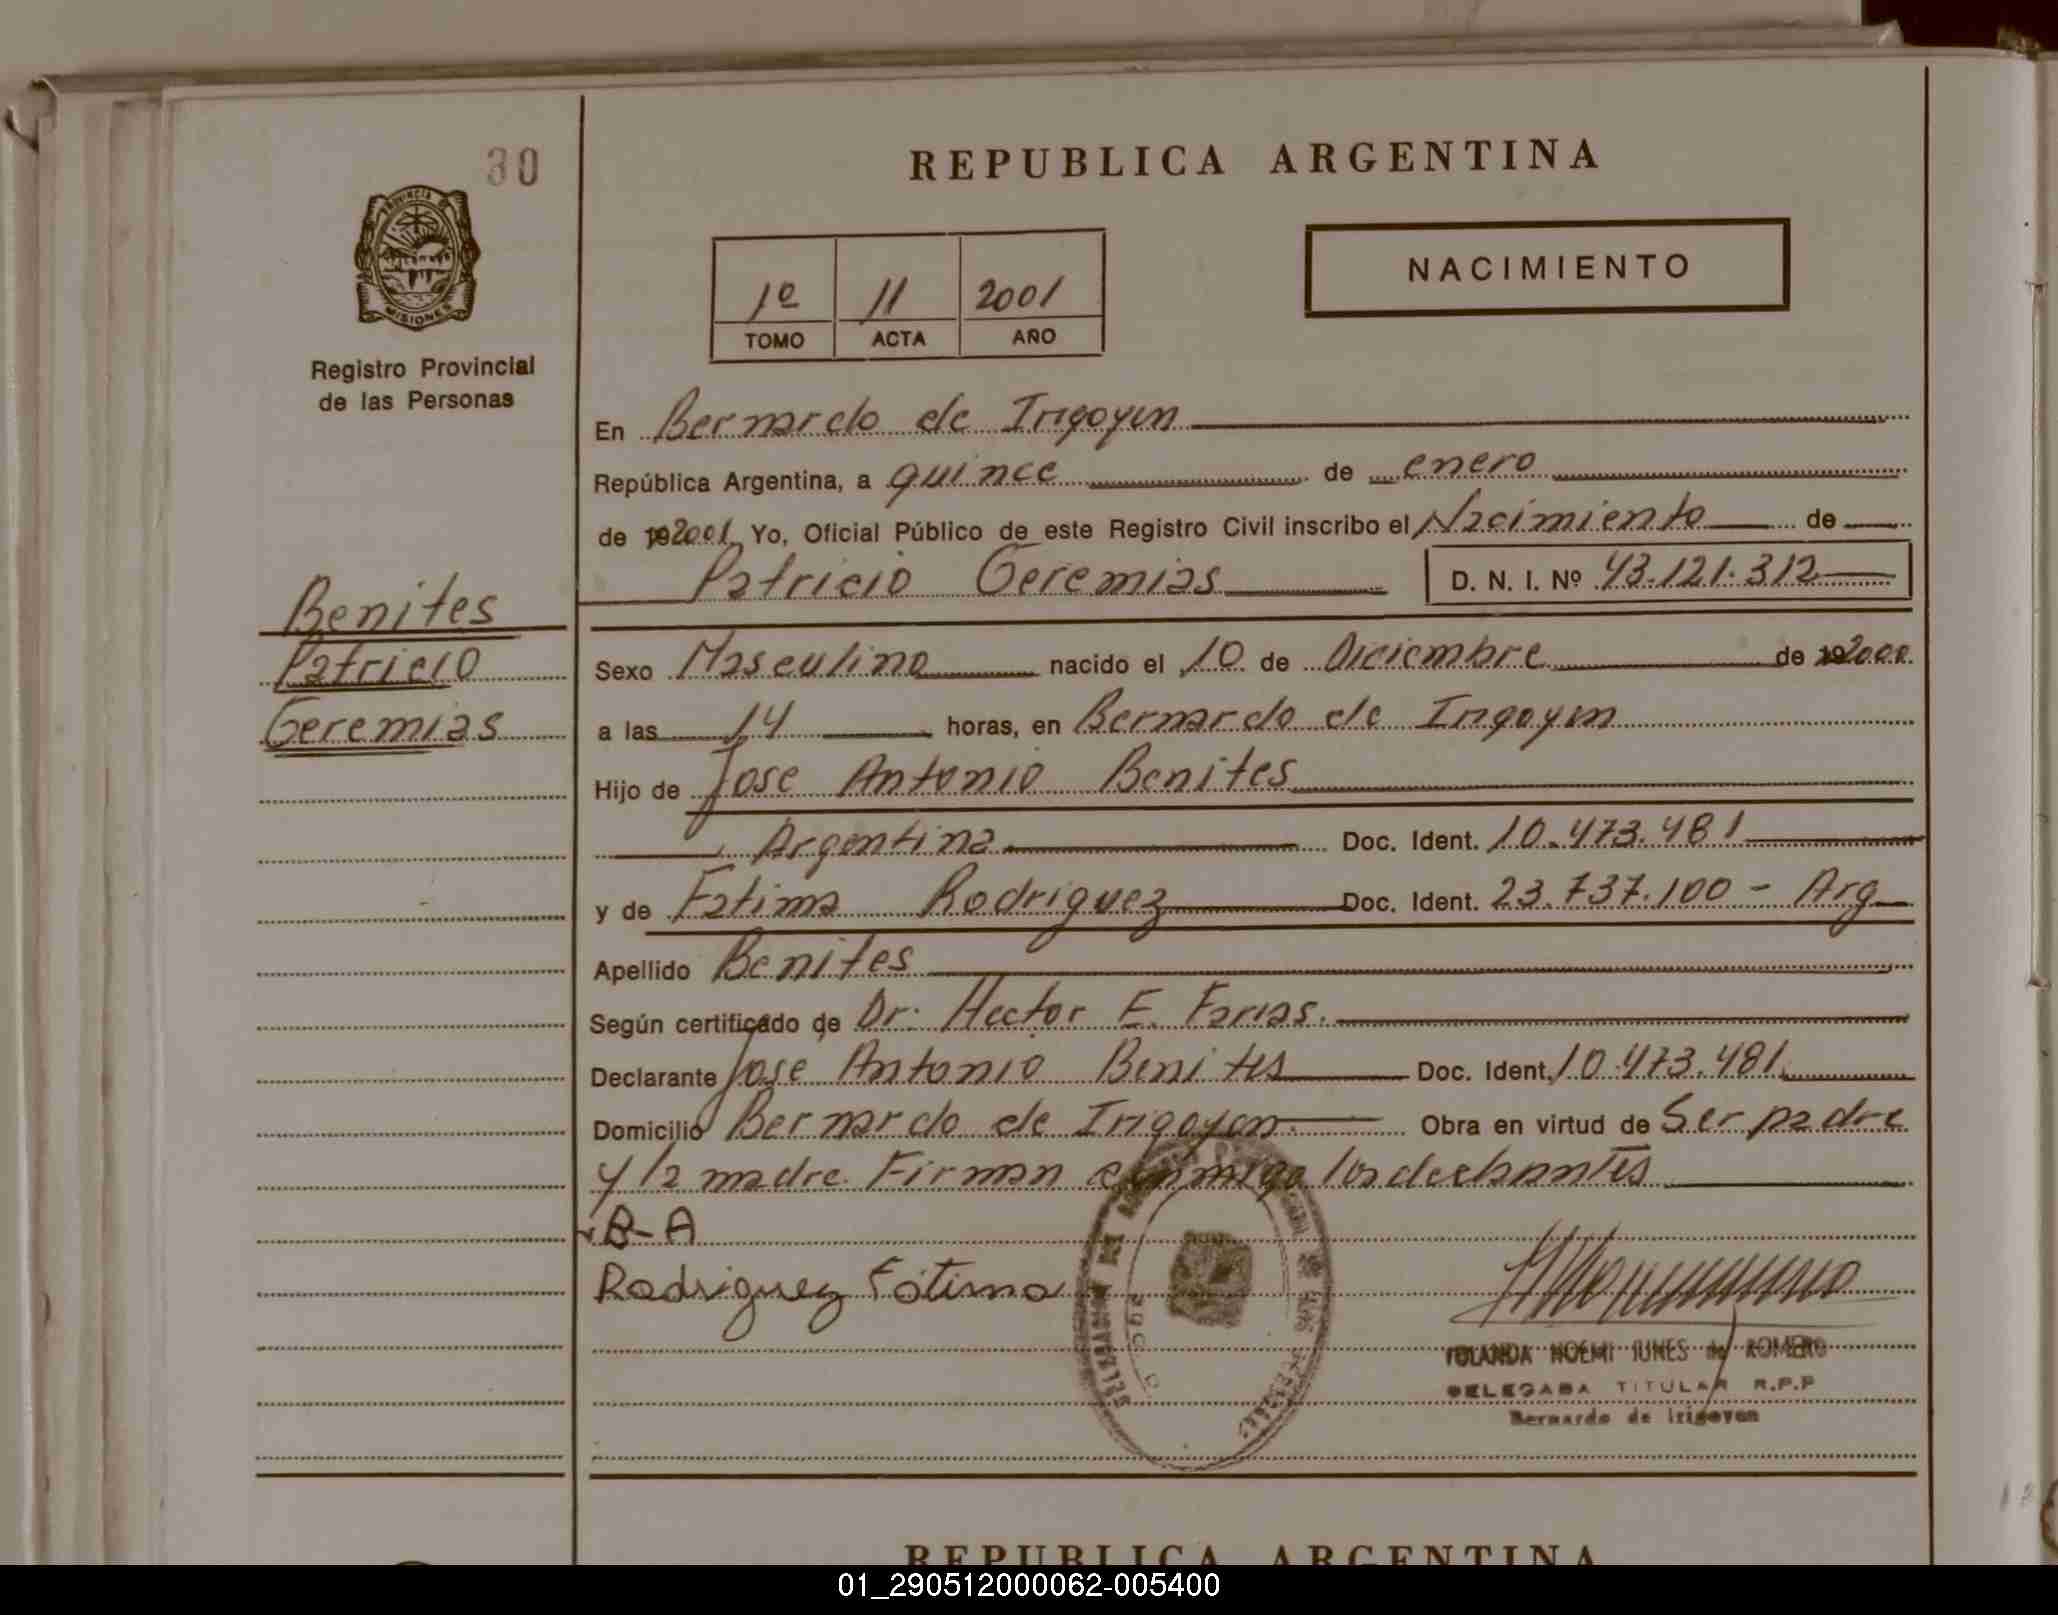 30
PROVINCIA DE
MISIONES
Registro Provincial
de las Personas
REPUBLICA ARGENTINA
1º 11 2001
TOMO ACTA AÑO
NACIMIENTO
En Bernardo de Irigoyen
República Argentina, a quince de enero
de 192001 Yo, Oficial Público de este Registro Civil inscribo el Nacimiento de
Patricio Geremias D. N. I. Nº 43.121.312
Benites
Patricio
Geremias
Sexo Masculino nacido el 10 de Diciembre de 192000
a las 14 horas, en Bernardo de Irigoyen
Hijo de Jose Antonio Benites
Argentina Doc. Ident. 10.473.481
y de Fatima Rodriguez Doc. Ident. 23.737.100 - Arg
Apellido Benites
Según certificado de Dr. Hector E. Farias.
Declarante Jose Antonio Benites Doc. Ident. 10.473.481
Domicilio Bernardo de Irigoyen. Obra en virtud de Ser padre
y la madre. Firman conmigo los declarantes
B-A
Rodriguez Fótima
YOLANDA NOEMI IUNES de ROMERO
DELEGADA TITULAR R.P.P
Bernardo de Irigoyen
REPUBLICA ARGENTINA
01_290512000062-005400